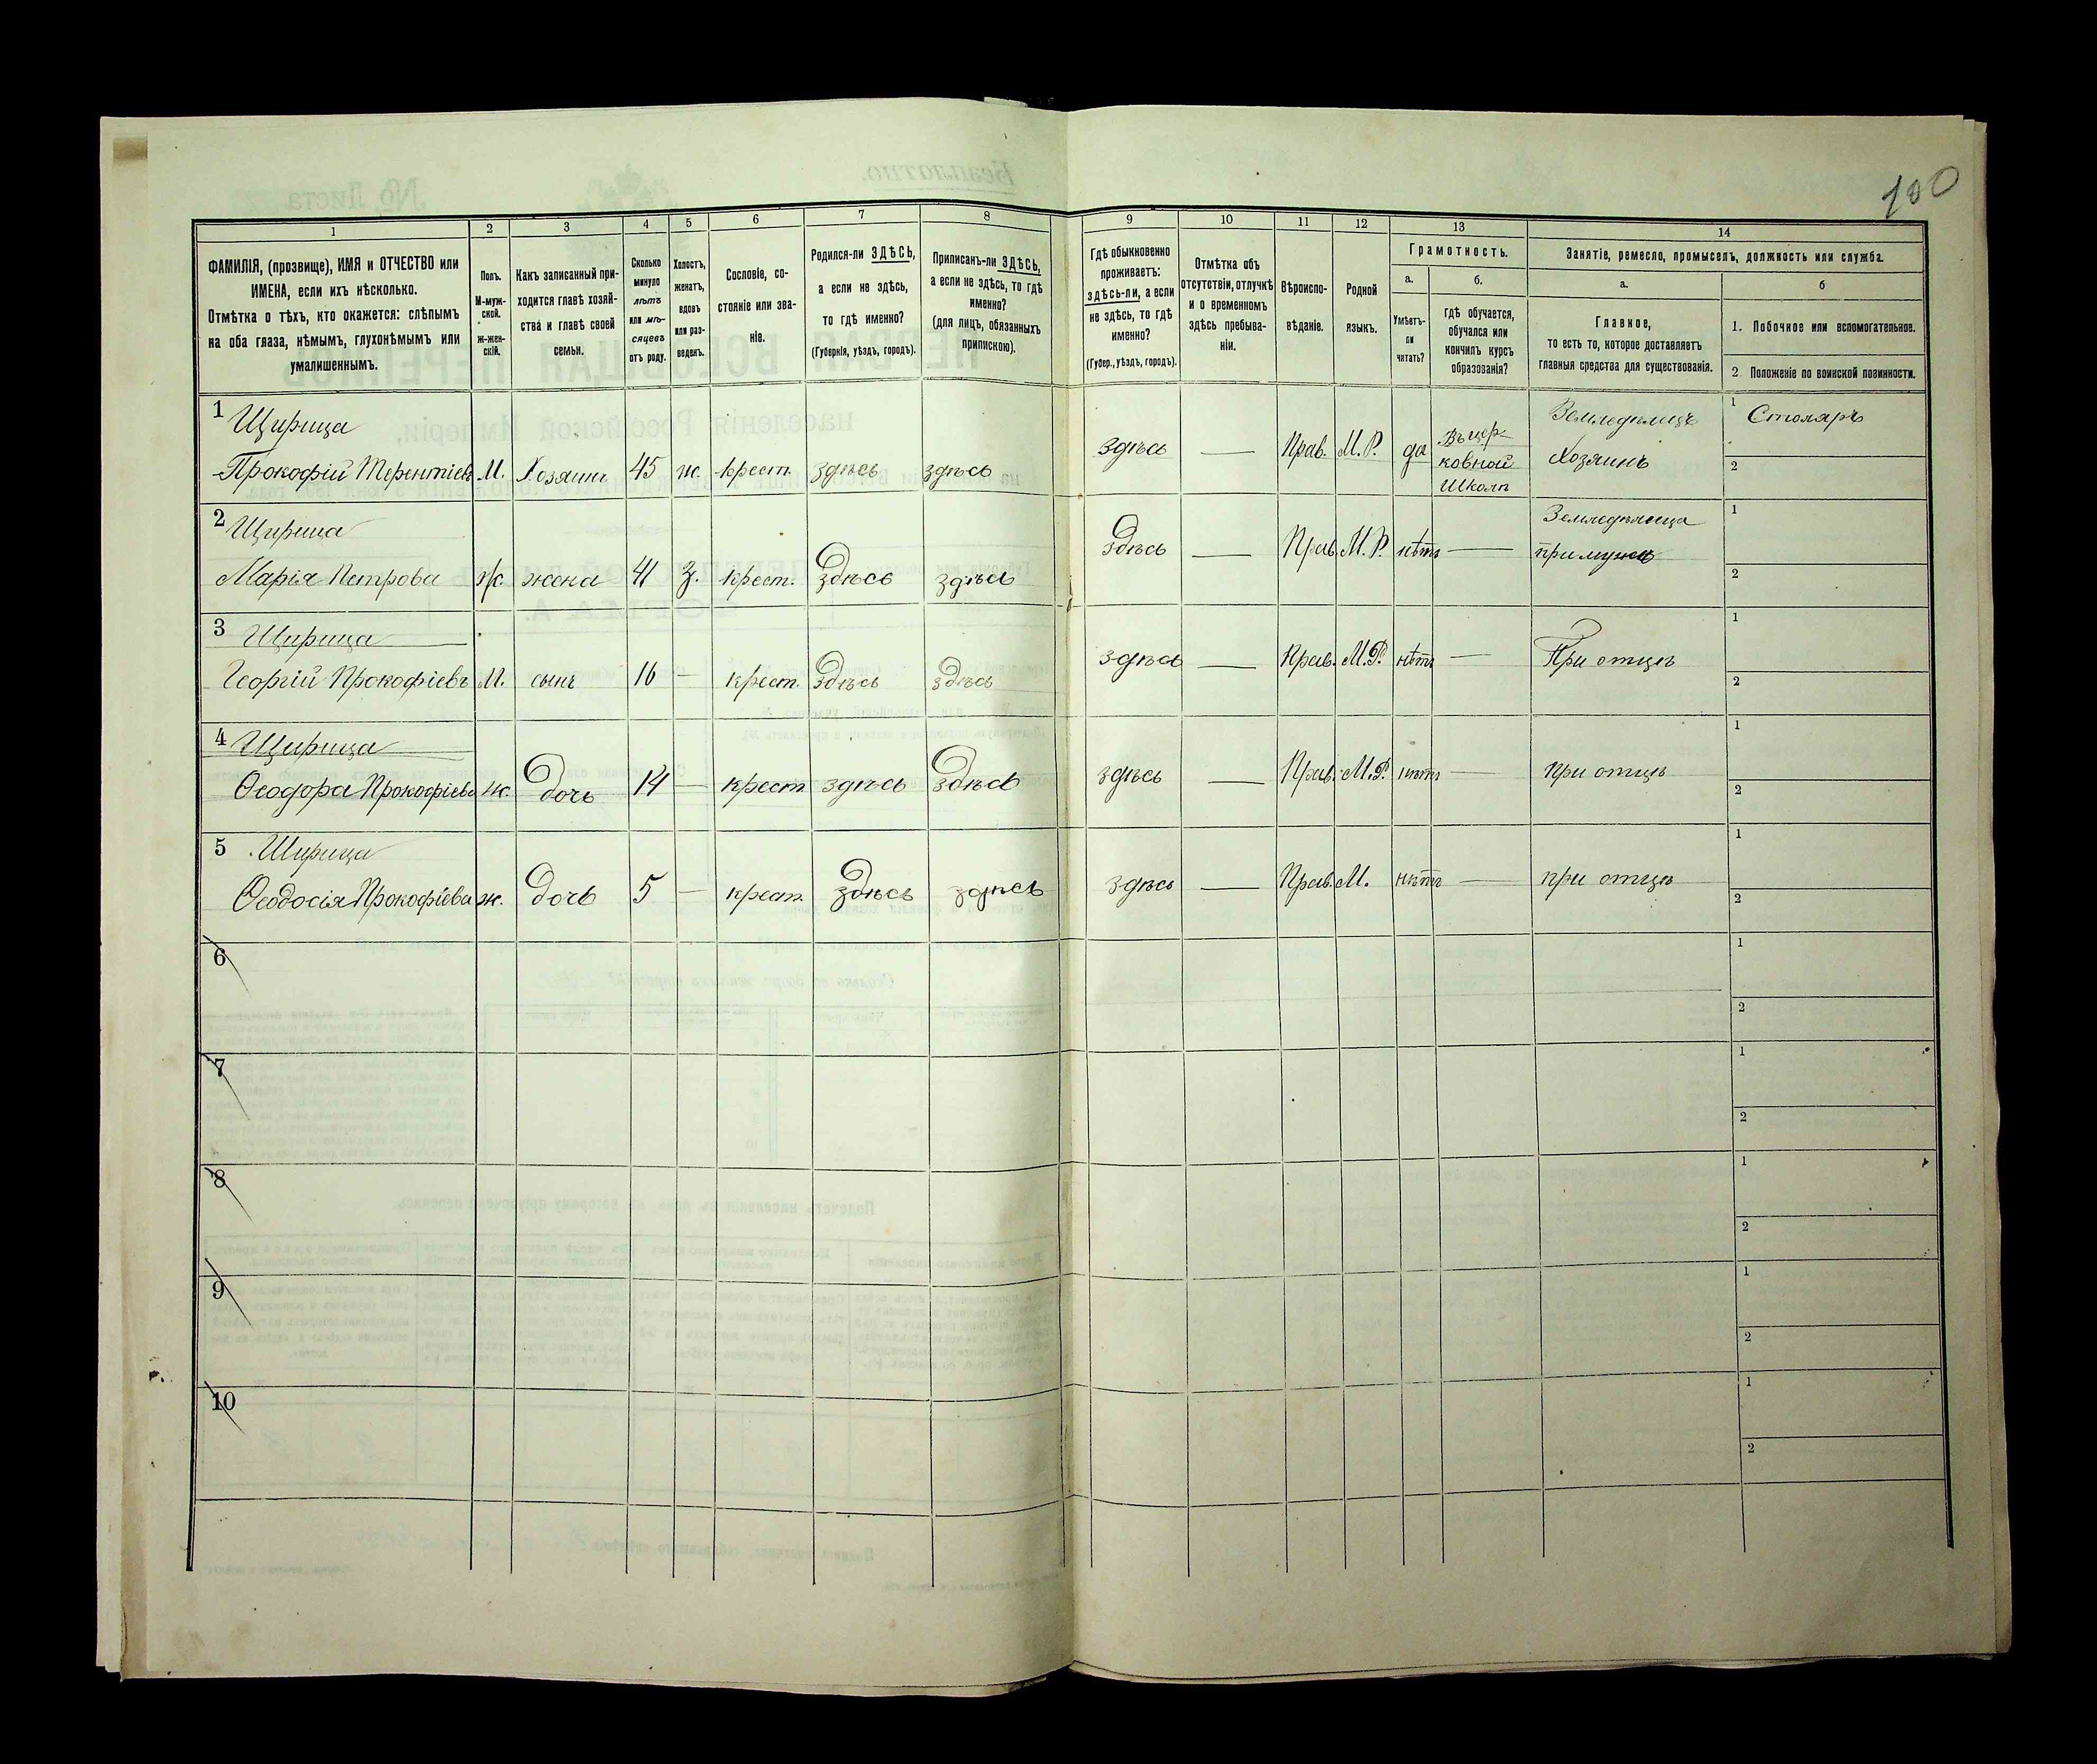 100
1 2 3 4 5 6 7 8 9 10 11 12 13 14
ФАМИЛІЯ, (прозвище), ИМЯ и ОТЧЕСТВО или
ИМЕНА, если ихъ нѣсколько.
Отмѣтка о тѣхъ, кто окажется: слѣпымъ
на оба глаза, нѣмымъ, глухонѣмымъ или
умалишеннымъ.
Полъ.
М-муж-
ской.
ж-жен-
скій.
Какъ записанный при-
ходится главѣ хозяй-
ства и главѣ своей
семьи.
Сколько
минуло
лѣтъ
или мѣ-
сяцевъ
отъ роду.
Холостъ,
женатъ,
вдовъ
или раз-
веденъ.
Сословіе, со-
стояніе или зва-
ніе.
Родился-ли ЗДѢСЬ,
а если не здѣсь,
то гдѣ именно?
(Губернія, уѣздъ, городъ).
Приписанъ-ли ЗДѢСЬ,
а если не здѣсь, то гдѣ
именно?
(для лицъ, обязанныхъ
припискою).
Гдѣ обыкновенно
проживаетъ:
здѣсь-ли, а если
не здѣсь, то гдѣ
именно?
(Губер., уѣздъ, городъ).
Отмѣтка объ
отсутствіи, отлучкѣ
и о временномъ
здѣсь пребыва-
ніи.
Вѣроиспо-
вѣданіе.
Родной
языкъ.
Грамотность.
а.
Умѣетъ-
ли
читать?
б.
гдѣ обучается,
обучался или
кончилъ курсъ
образованія?
Занятіе, ремесло, промыселъ, должность или служба.
а.
Главное,
то есть то, которое доставляетъ
главныя средства для существованія.
б
1. Побочное или вспомогательное.
2 Положеніе по воинской повинности.
1 Щирица
Прокофій Терентіевъ М. Хозяинъ 45 ж. крест. здѣсь здѣсь здѣсь — Прав. М.Р. да
Въ цер-
ковной
Школѣ
Земледѣлецъ
Хозяинъ
1 Столяръ
2
2 Щирица
Марія Петрова ж. жена 41 з. крест. здѣсь здѣсь здѣсь — Прав. М.Р. нѣтъ —
Земледѣлица
при мужѣ
1
2
3 Щирица
Георгій Прокофіевъ М. сынъ 16 — крест. здѣсь здѣсь здѣсь — Прав. М.Р. нѣтъ — При отцѣ
1
2
4 Щирица
Ѳеодора Прокофіева ж. дочь 14 — крест здѣсь здѣсь здѣсь — Прав. М.Р. нѣтъ — при отцѣ
1
2
5 Щирица
Ѳеодосія Прокофіева ж. дочь 5 — крест. здѣсь здѣсь здѣсь — Прав. М. нѣтъ — при отцѣ
1
2
6
1
2
7
1
2
8
1
2
9
1
2
10
1
2